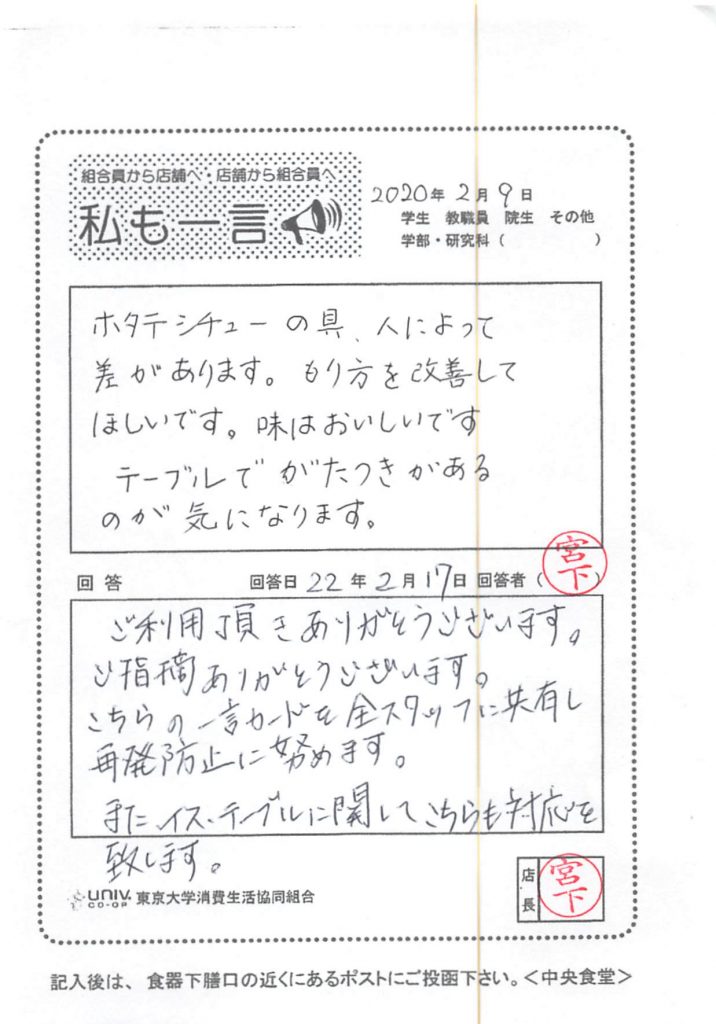 組合員から店舗へ・店舗から組合員へ
私も一言
2020年 2月 9日
学生 教職員 院生 その他
学部・研究科（ ）
ホタテシチューの具、人によって
差があります。もり方を改善して
ほしいです。味はおいしいです
テーブルで がたつきがある
のが気になります。
回答 回答日 22年 2月 17日 回答者（宮下）
ご利用頂きありがとうございます。
ご指摘ありがとうございます。
こちらの一言カードを全スタッフに共有し
再発防止に努めます。
またイス・テーブルに関してこちらも対応を
致します。
UNIV. CO-OP 東京大学消費生活協同組合
店長 宮下
記入後は、食器下膳口の近くにあるポストにご投函下さい。＜中央食堂＞